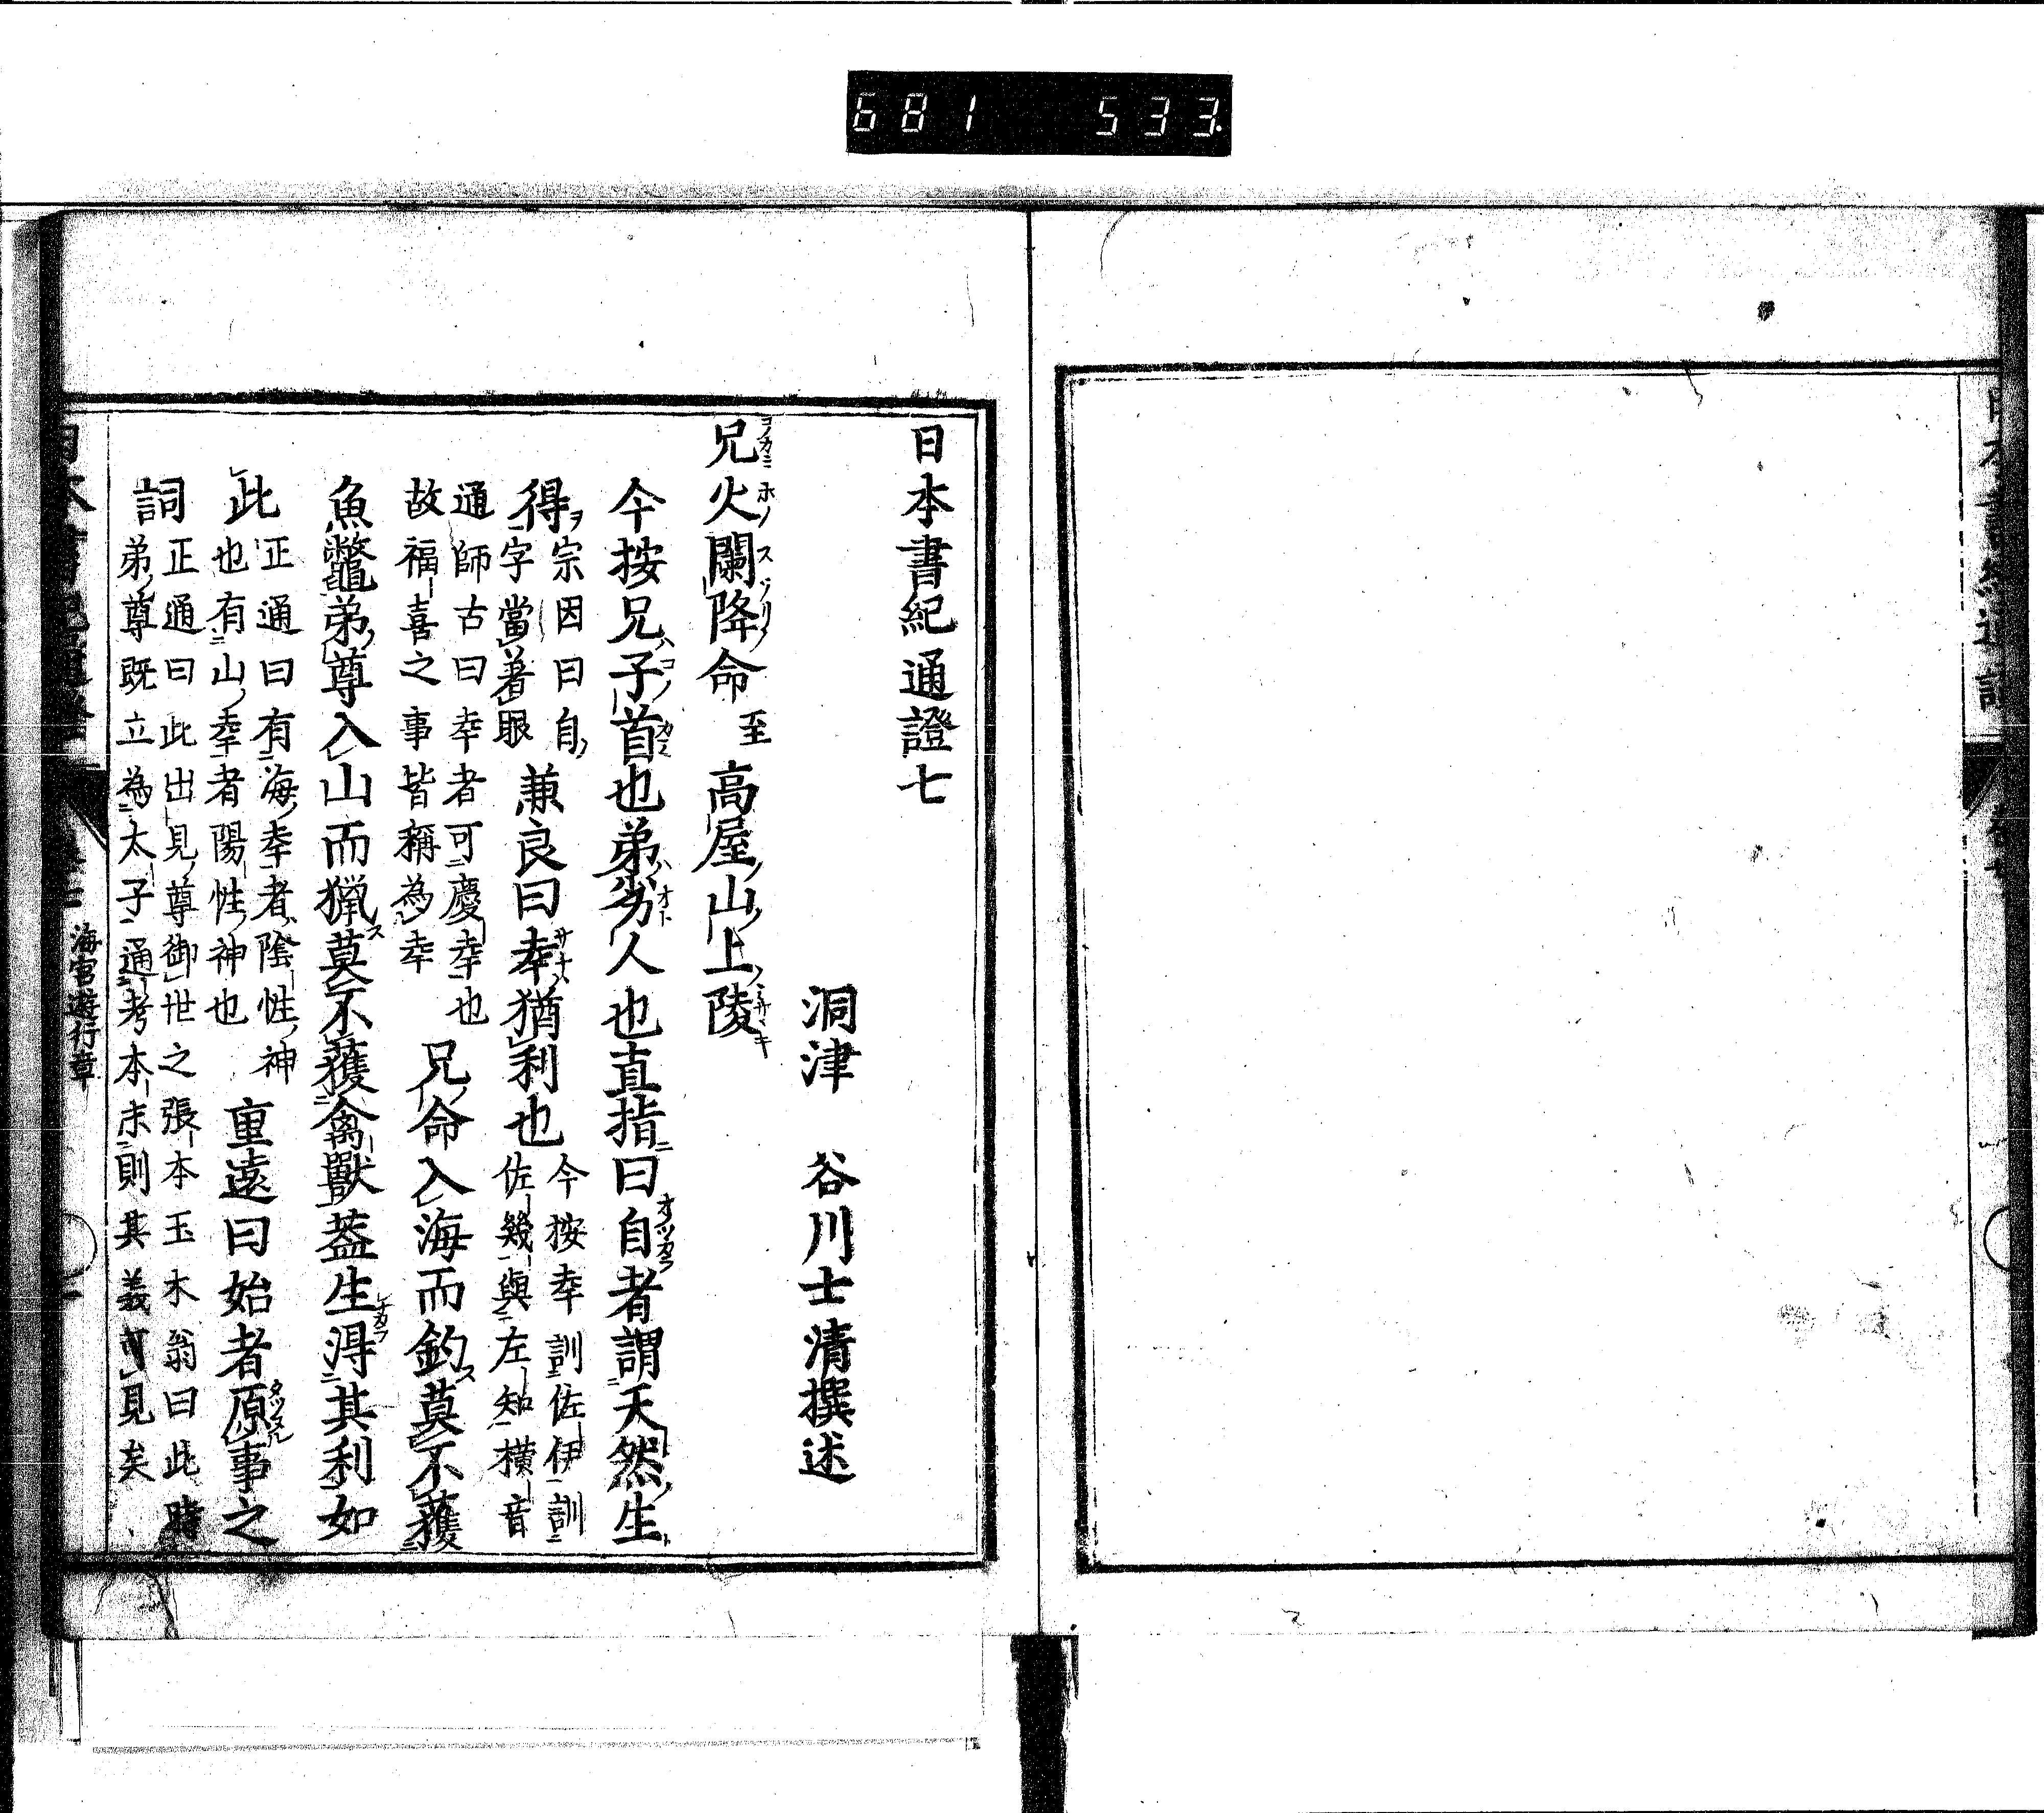 681 533.
日本書紀通證七
洞津 谷川士清撰述
兄火闌降命至高屋山上陵
今按兄子首也弟劣人也直指曰自者謂天然生
得宗因曰自字當著眼兼良曰幸猶利也今按幸訓佐伊訓佐幾與左知橫音
通師古曰幸者可慶幸也故福喜之事皆稱為幸兄命入海而釣莫不獲
魚鼈弟尊入山而獵莫不獲禽獸蓋生得其利如
此正通曰有海幸者陰性神也有山幸者陽性神也重遠曰始者原事之
詞正通曰此出見尊御世之張本玉木翁曰此時弟尊既立為太子通考本末則其義可見矣
海宮遊行章